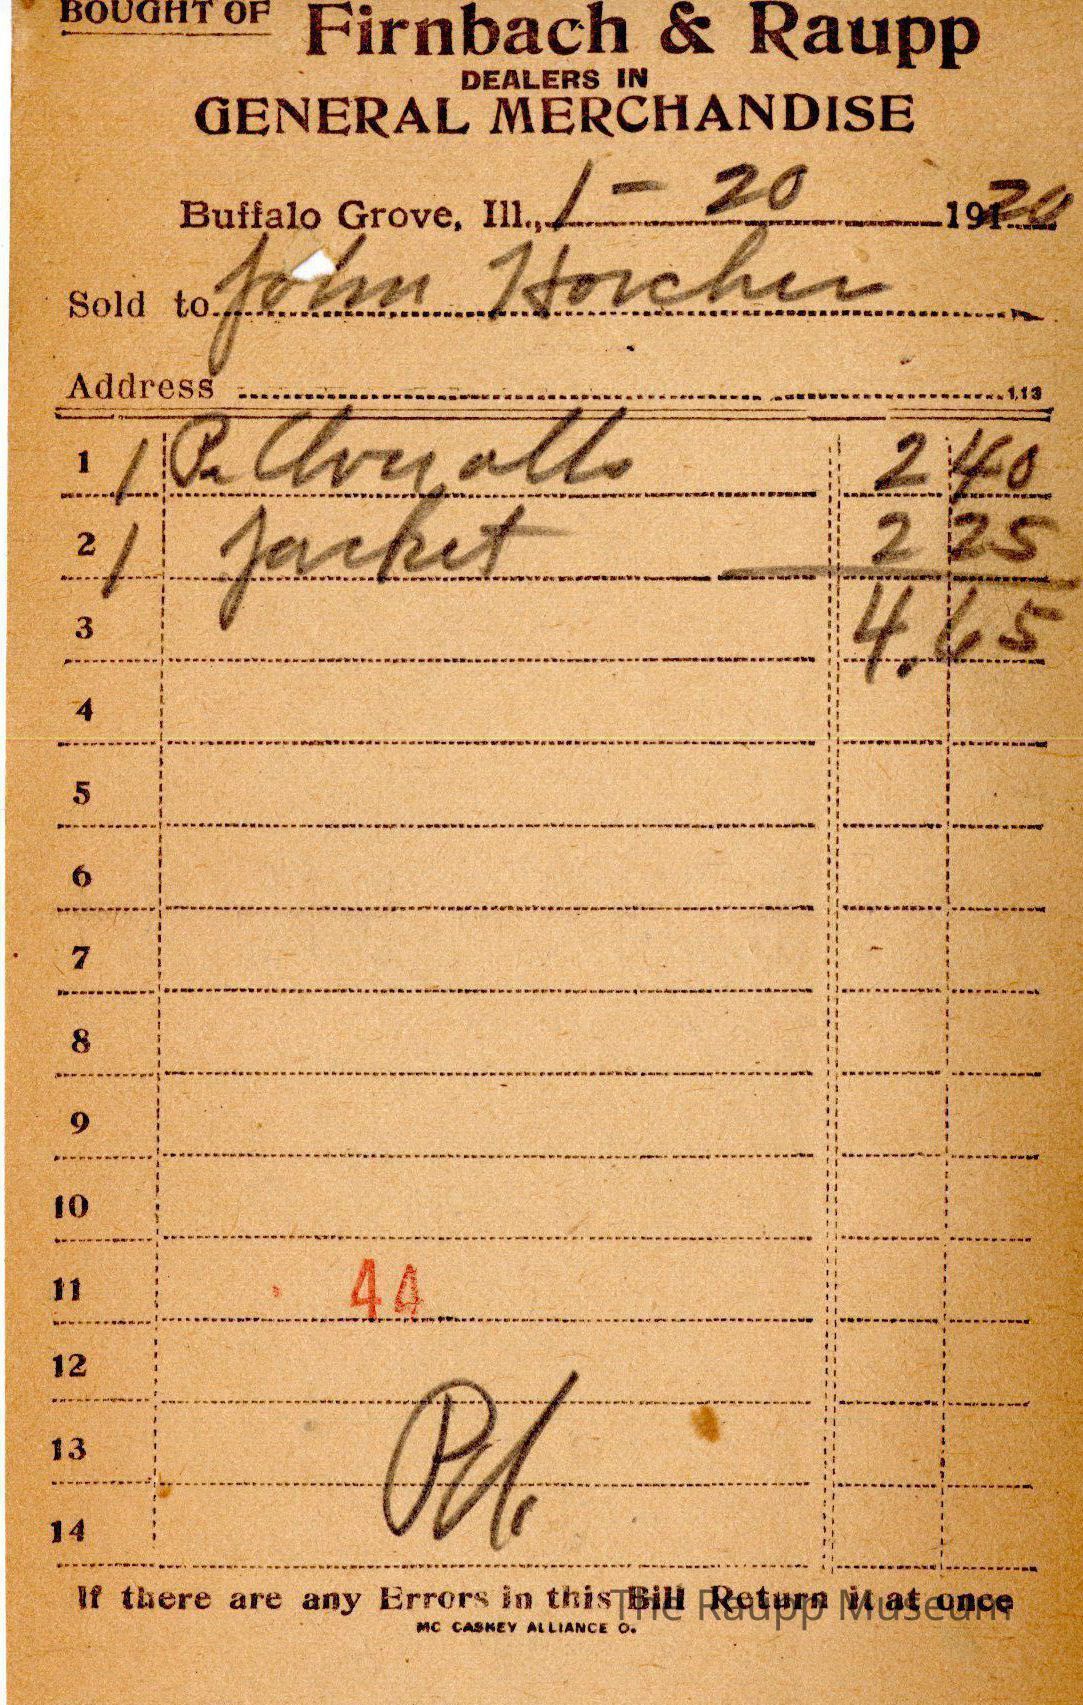 BOUGHT OF Firnbach & Raupp
DEALERS IN
GENERAL MERCHANDISE
Buffalo Grove, Ill., 1-20 191 20
Sold to John Horcher
Address 113
1 1 Pr Overalls 2 40
2 1 Jacket 2 25
3 4.65
4
5
6
7
8
9
10
11 44
12
13 Pd.
14
If there are any Errors in this Bill Return it at once
The Raupp Museum
MC CASKEY ALLIANCE O.